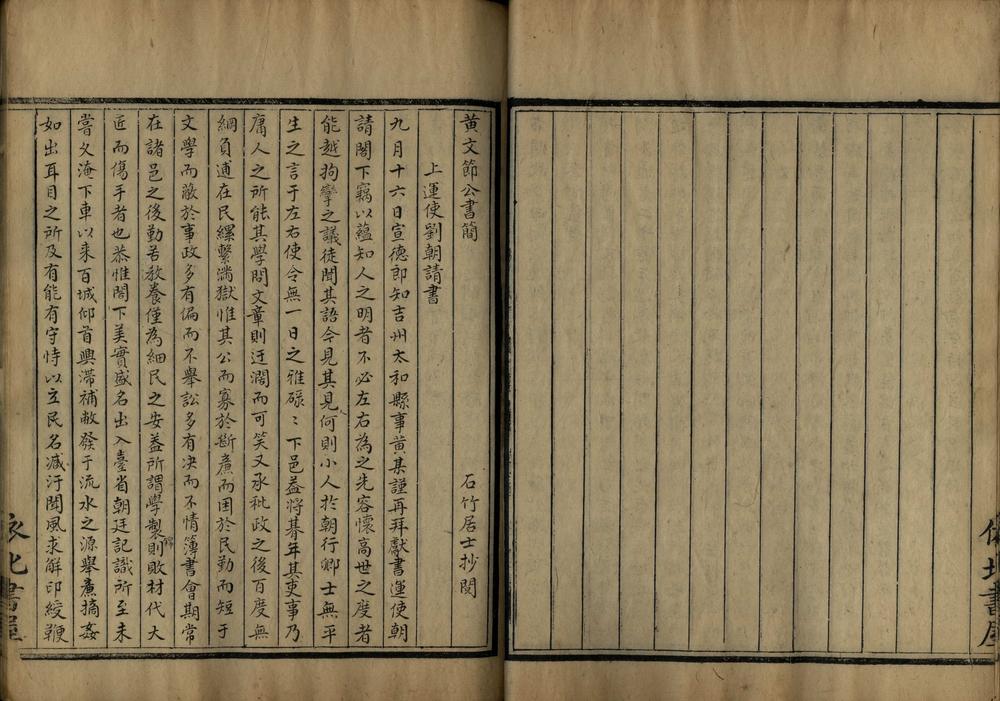 黄文節公書簡 石竹居士抄閱
上運使劉朝請書
九月十六日宣德郎知吉州太和縣事黄某謹再拜獻書運使朝
請閤下竊以蘊知人之明者不必左右為之先容懷高世之度者
能越拘攣之議徒聞其語今見其見何則小人於朝行卿士無平
生之言于左右使令無一日之雅碌〻下邑益將朞年其吏事乃
庸人之所能其學問文章則迂濶而可笑又承秕政之後百度無
綱負逋在民縲繫満獄惟其公而寡於斷㢘而困於民勤而短于
文學而蔽於事政多有偏而不舉訟多有决而不情簿書會期常
在諸邑之後勤苦教養僅為細民之安益所謂學製則敗材代大
匠而傷手者也恭惟閤下美實盛名出入臺省朝廷記識所至未
嘗久淹下車以来百城仰首興滯補敝發于流水之源舉㢘摘姦
如出耳目之所及有能有守恃以立民名减汙聞風求解印綬鞭